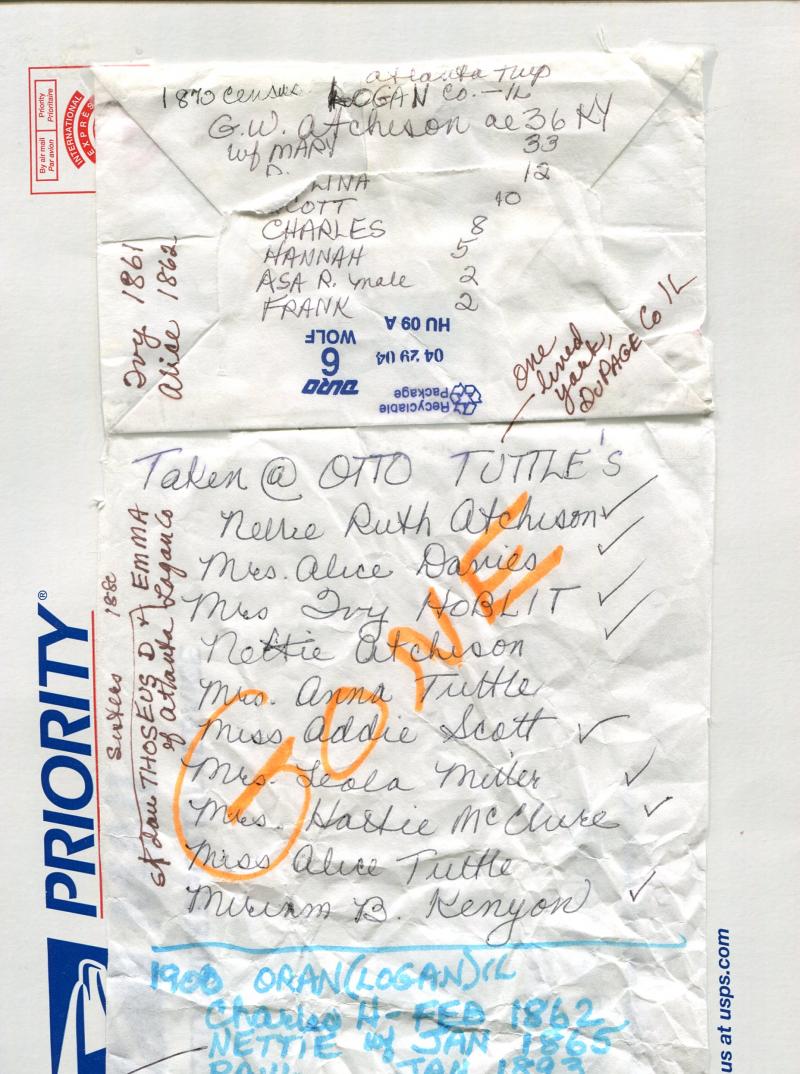 Atlanta Twp
1870 Census LOGAN Co. - IL
G.W. Atchison ae 36 NY
wf MARY 33
LINA 12
SCOTT 10
CHARLES 8
HANNAH 5
ASA R. male 2
FRANK 2
Ivy 1861
Alice 1862
one
lived
yank,
DUPAGE Co IL
HU 09 A
WOLF
04 29 04
6
DURO
Recyclable
Package
Taken @ OTTO TUTTLE'S
Nellie Ruth Atchison ✓
Mrs. Alice Davies ✓
Mrs Ivy HOBLIT ✓
Nettie Atchison ✓
Mrs. Anna Tuttle
Miss Addie Scott ✓
Mrs. Leola Miller ✓
Mrs. Hattie McClure ✓
Miss Alice Tuttle
Miriam B. Kenyon ✓
GONE
Sisters 1880
THOSEUS D & EMMA
of Atlanta Logan Co
1900 ORAN (LOGAN) IL
Charles H - FEB 1862
NETTIE wf JAN 1865
PAUL JAN 1893
By air mail
Par avion
Priority
Prioritaire
INTERNATIONAL
EXPRES
PRIORITY®
us at usps.com